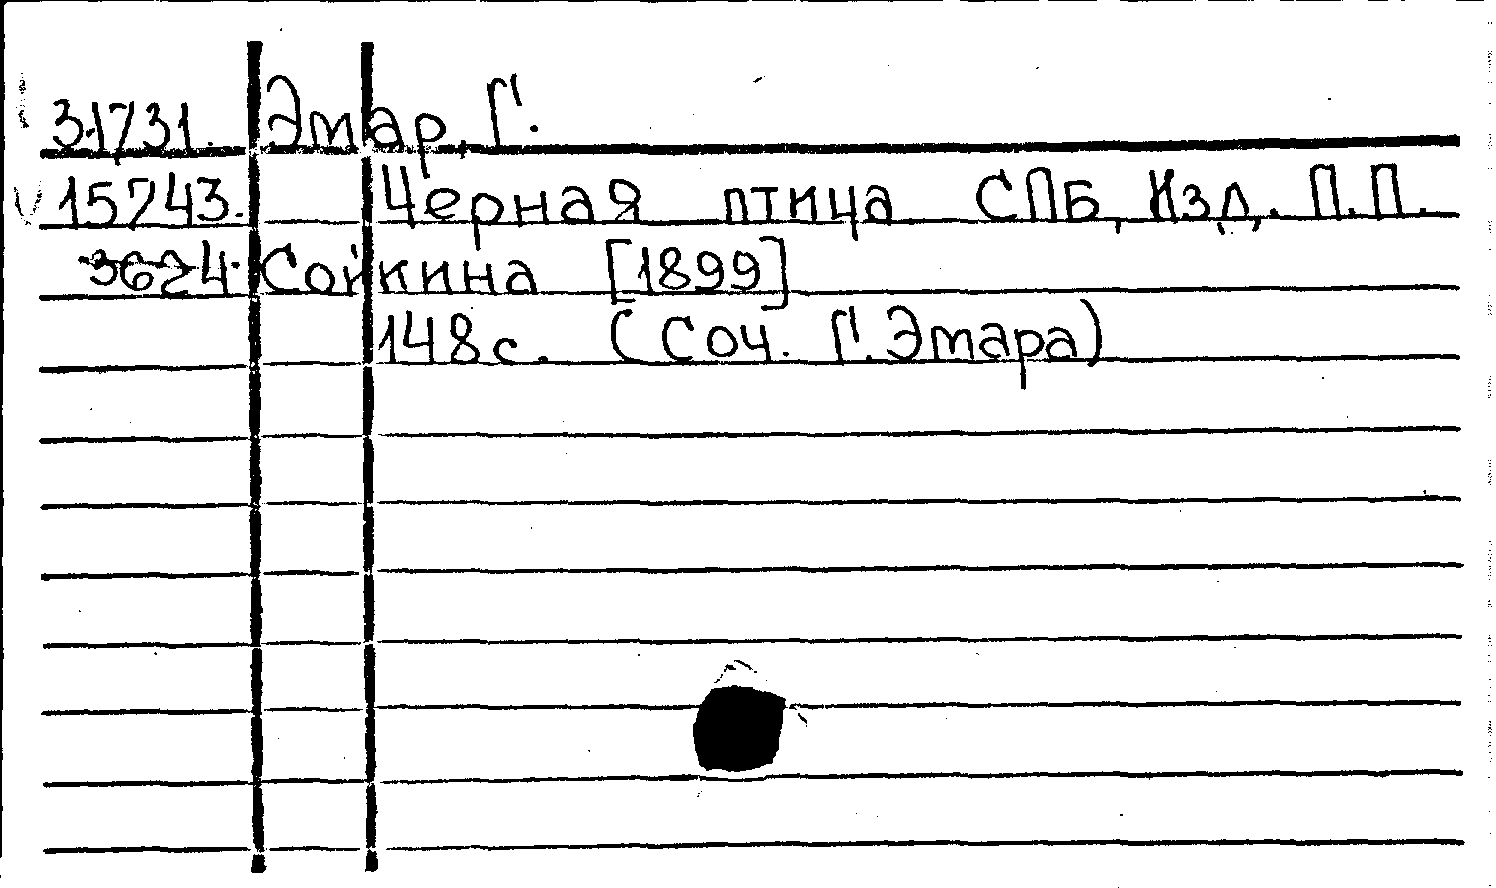 31731. Эмар, Г.
15743. Черная птица СПБ, Изд. П.П.
3624. Сойкина [1899]
148с. (Соч. Г. Эмара)